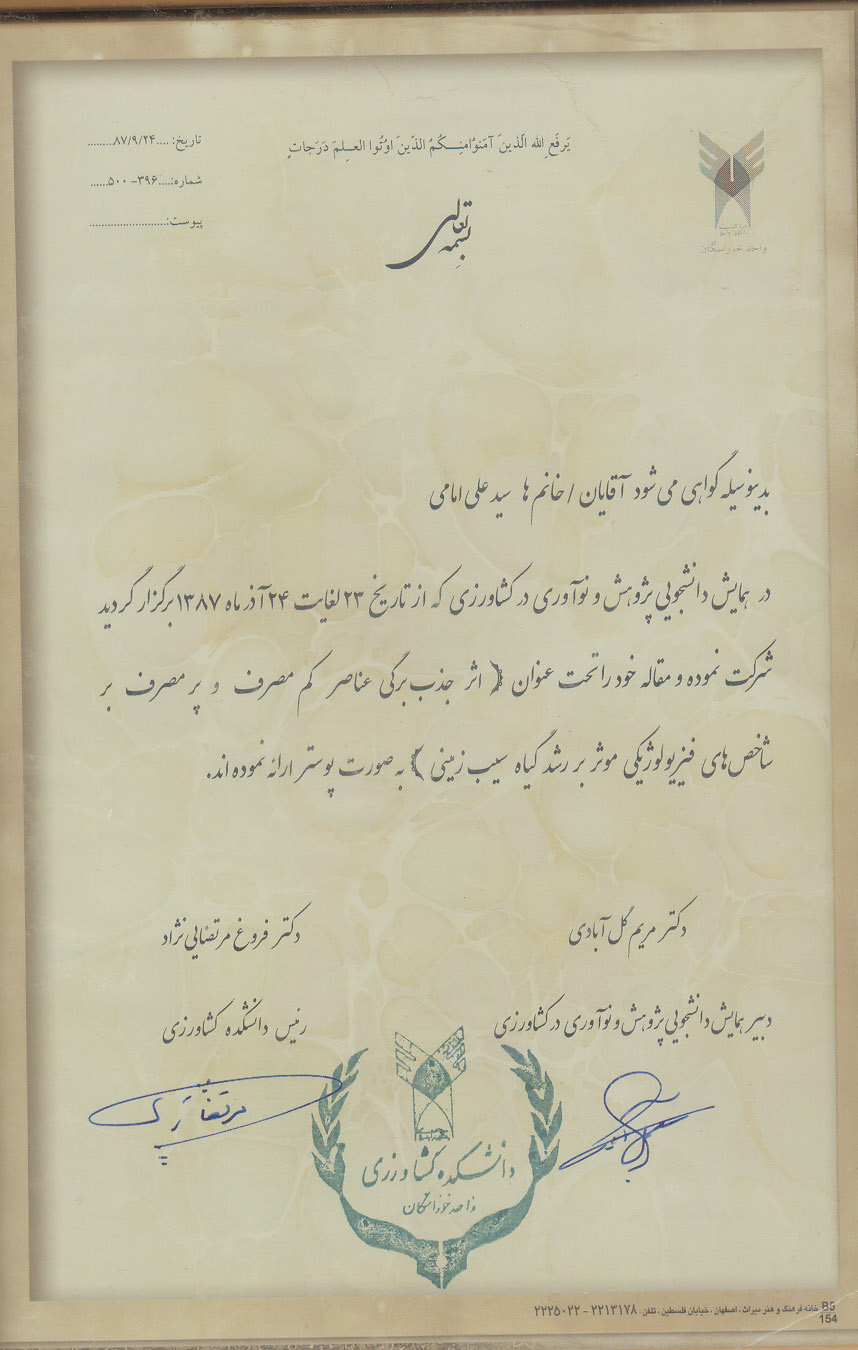 یَرفَعِ الله الَّذینَ آمَنوُامنِـکُمُ الذَّینَ اوُتُوا العـِلمَ دَرَجاتٍ
تاریخ: ....۸۷/۹/۲۴........
شماره:....۳۹۶- ۵۰۰......
پیوست:..........................
بسمه تعالی
واحد خوراسگان
بدینوسیله گواهی می شود آقایان / خانم ها سید علی امامی
در همایش دانشجویی پژوهش و نوآوری در کشاورزی که از تاریخ ۲۳ لغایت ۲۴ آذر ماه ۱۳۸۷ برگزار گردید
شرکت نموده و مقاله خود را تحت عنوان ( اثر جذب برگی عناصر کم مصرف و پر مصرف بر
شاخص های فیزیولوژیکی موثر بر رشد گیاه سیب زمینی ) به صورت پوستر ارائه نموده اند.
دکتر مریم گل آبادی
دبیر همایش دانشجویی پژوهش و نوآوری در کشاورزی
دکتر فروغ مرتضایی نژاد
رئیس دانشکده کشاورزی
دانشکده کشاورزی
واحد خوراسگان
B5 خانه فرهنگ و هنر میراث ، اصفهان ، خیابان فلسطین ، تلفن : ۲۲۱۳۱۷۸ - ۲۲۲۵۰۲۲
154